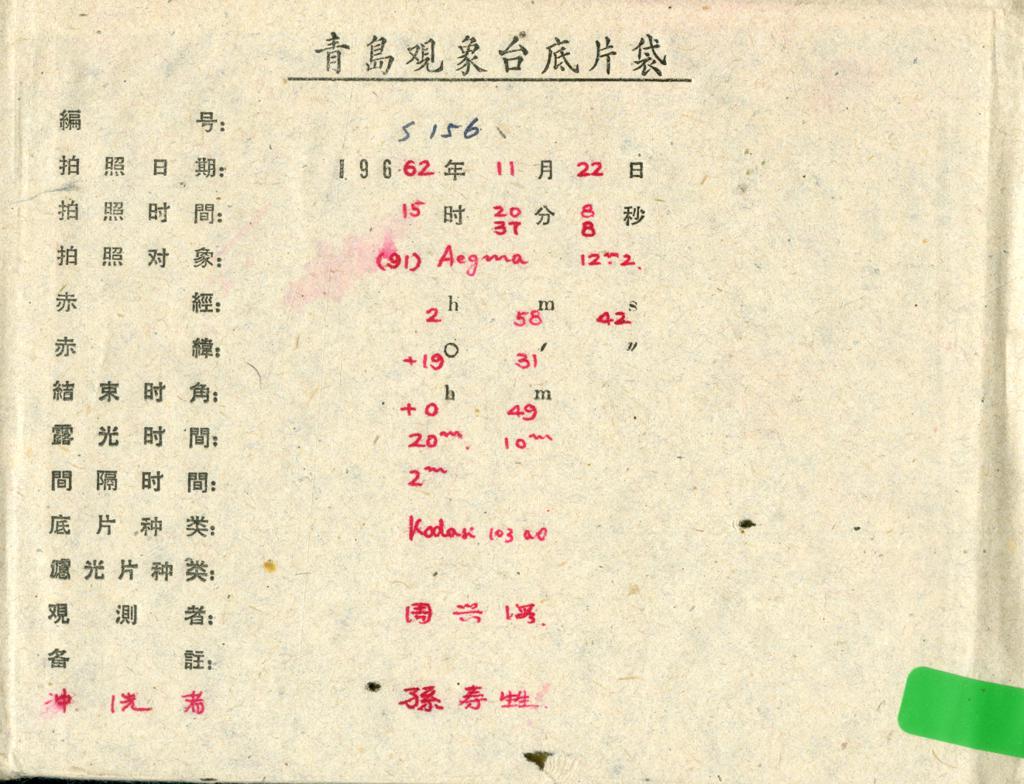 青島观象台底片袋
編号: S 156
拍照日期: 196 62年 11月 22日
拍照时間: 15时 20分 8秒
37 8
拍照对象: (91) Aegina 12ᵐ.2.
赤經: 2h 58m 42s
赤緯: +19° 31′ ″
結束时角: +0h 49m
露光时間: 20ᵐ. 10ᵐ
間隔时間: 2ᵐ
底片种类: Kodak 103 aO
濾光片种类:
观測者: 周兴海.
备註:
冲洗者 孫寿